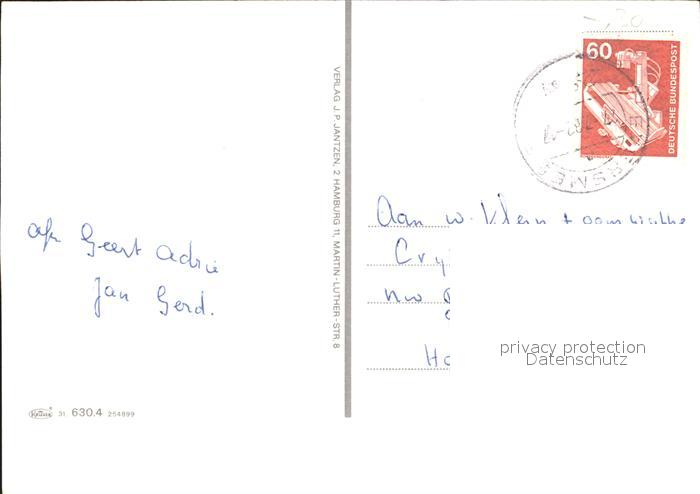 afz Geert Adrie
Jan Gerd.
31. 630.4 254899
VERLAG J. P. JANTZEN, 2 HAMBURG 11, MARTIN-LUTHER-STR. 8
60
DEUTSCHE BUNDESPOST
Aan W. Klein + 
Cry
Nw
Ho
privacy protection
Datenschutz